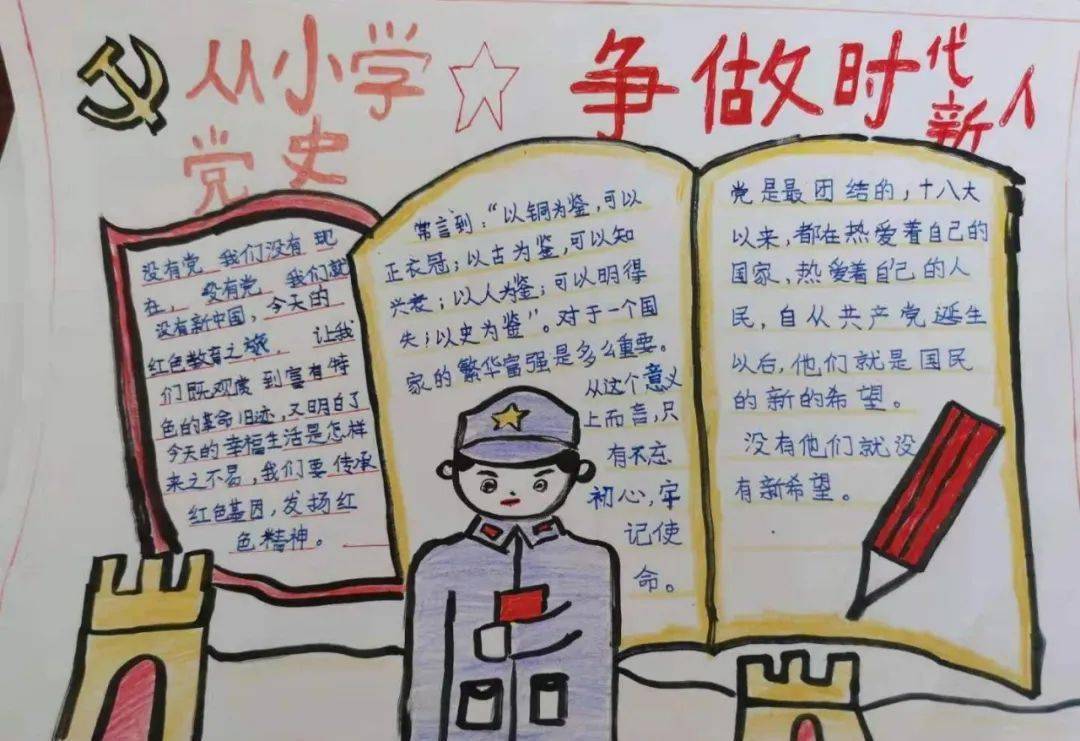 从小学
党史
争做时代
新人
没有党 我们没有现
在，没有党 我们就
没有新中国，今天的
红色教育之旅，让我
们既观赏到富有特
色的革命旧迹，又明白了
今天的幸福生活是怎样
来之不易，我们要传承
红色基因，发扬红
色精神。
常言到：“以铜为鉴，可以
正衣冠；以古为鉴，可以知
兴衰；以人为鉴；可以明得
失；以史为鉴”。对于一个国
家的繁华富强是多么重要。
从这个意义
上而言，只
有不忘
初心，牢
记使
命。
党是最团结的，十八大
以来，都在热爱着自己的
国家，热爱着自己的人
民，自从共产党诞生
以后，他们就是国民
的新的希望。
没有他们就没
有新希望。